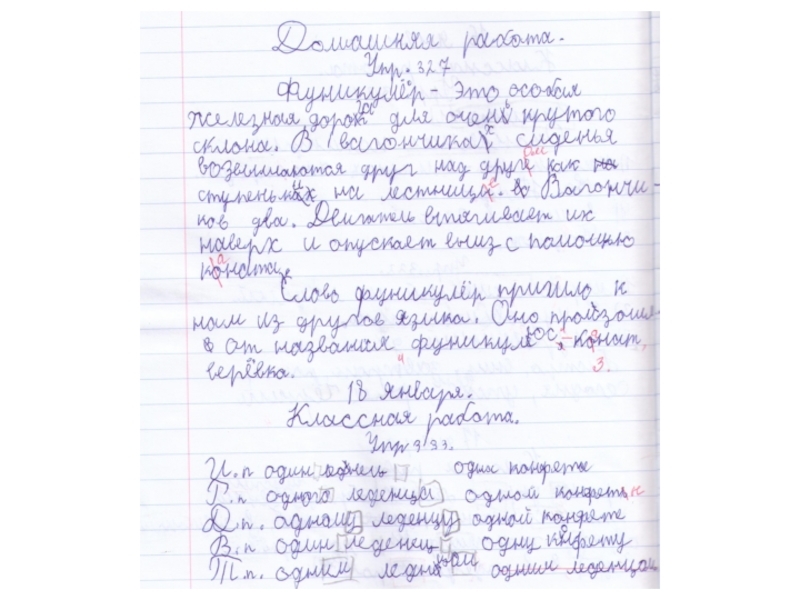 Домашняя работа.
Упр. 327
Фуникулёр - это особая
железная дорога для очень крутого
склона. В вагончиках сиденья
возвышаются друг над другом как
ступеньки на лестнице. Вагончи-
ков два. Двигатель втягивает их
наверх и опускает вниз с помощью
каната.
Слово фуникулёр пришло к
нам из другого языка. Оно произошл-
о от названия фуникулюс - канат,
верёвка. 3.
18 января.
Классная работа.
Упр 333.
И.п один леденец одна конфета
Г.п одного леденца одной конфеты
Д.п. одному леденцу одной конфете
В.п один леденец одну конфету
Т.п. одним одним леденцом